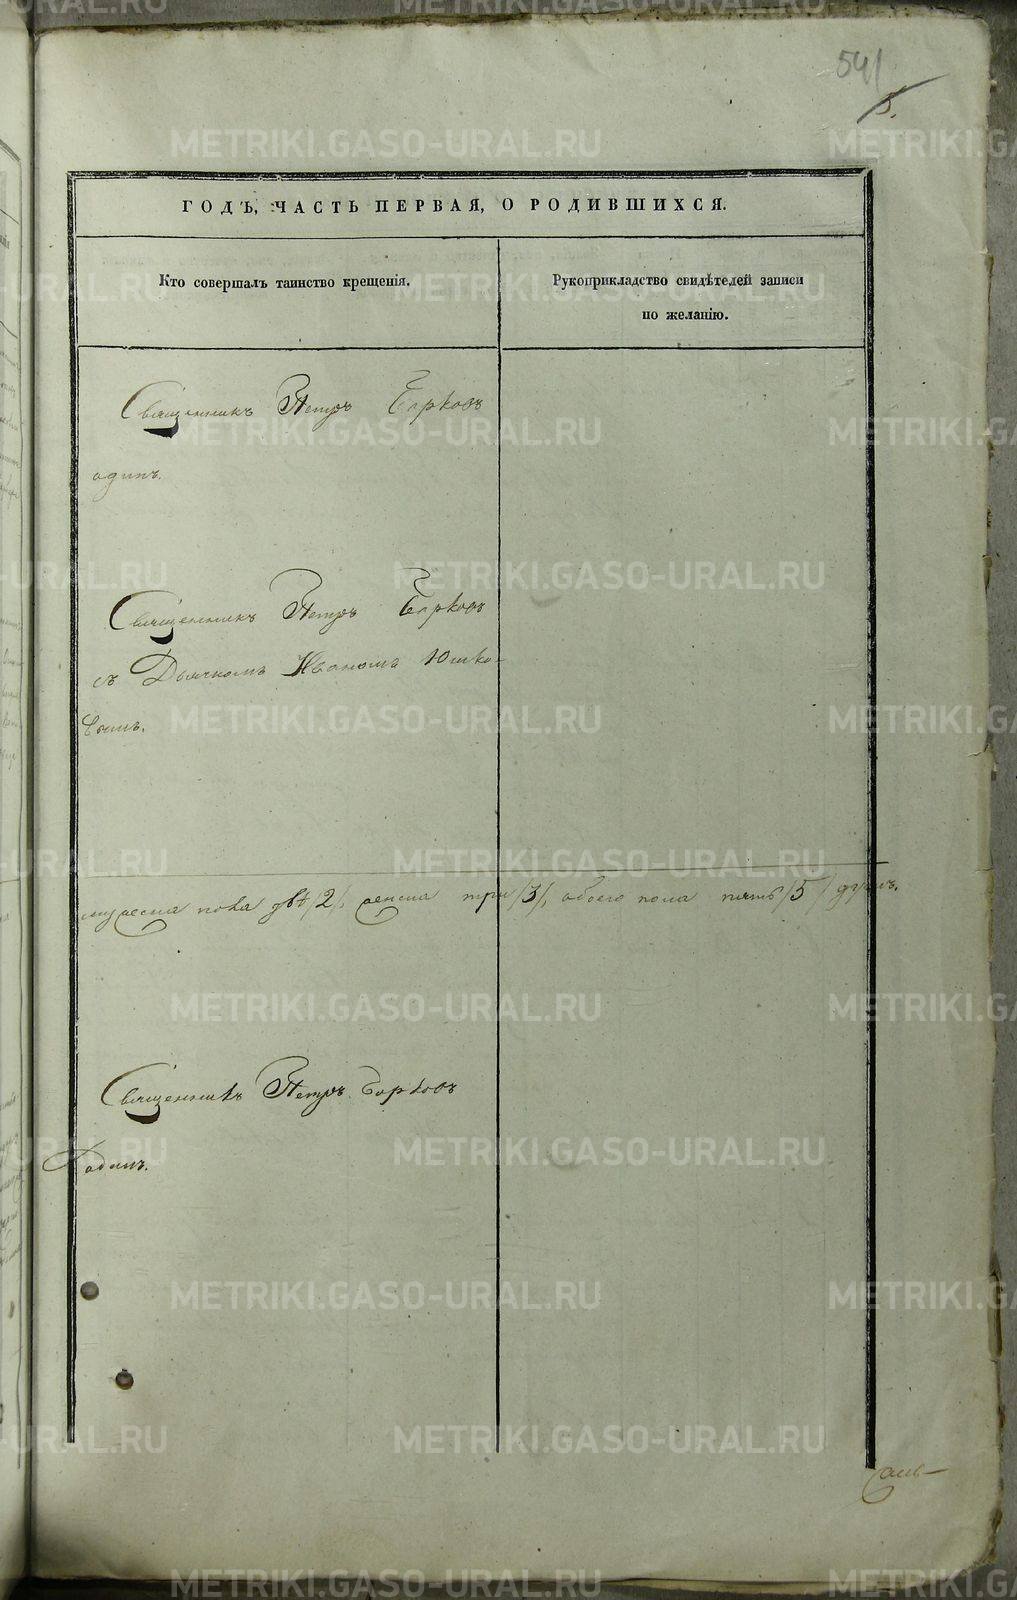 541
5.
ГОДЪ, ЧАСТЬ ПЕРВАЯ, О РОДИВШИХСЯ.
Кто совершалъ таинство крещенія.
Рукоприкладство свидѣтелей записи
по желанію.
Священникъ Петръ
одинъ.
Священникъ Петръ
съ Дьячкомъ Иваномъ Юшко-
вымъ.
мужеска пола двѣ /2/, женска три /3/, обоего пола пять /5/ душъ.
Священникъ Петръ
одинъ.
METRIKI.GASO-URAL.RU